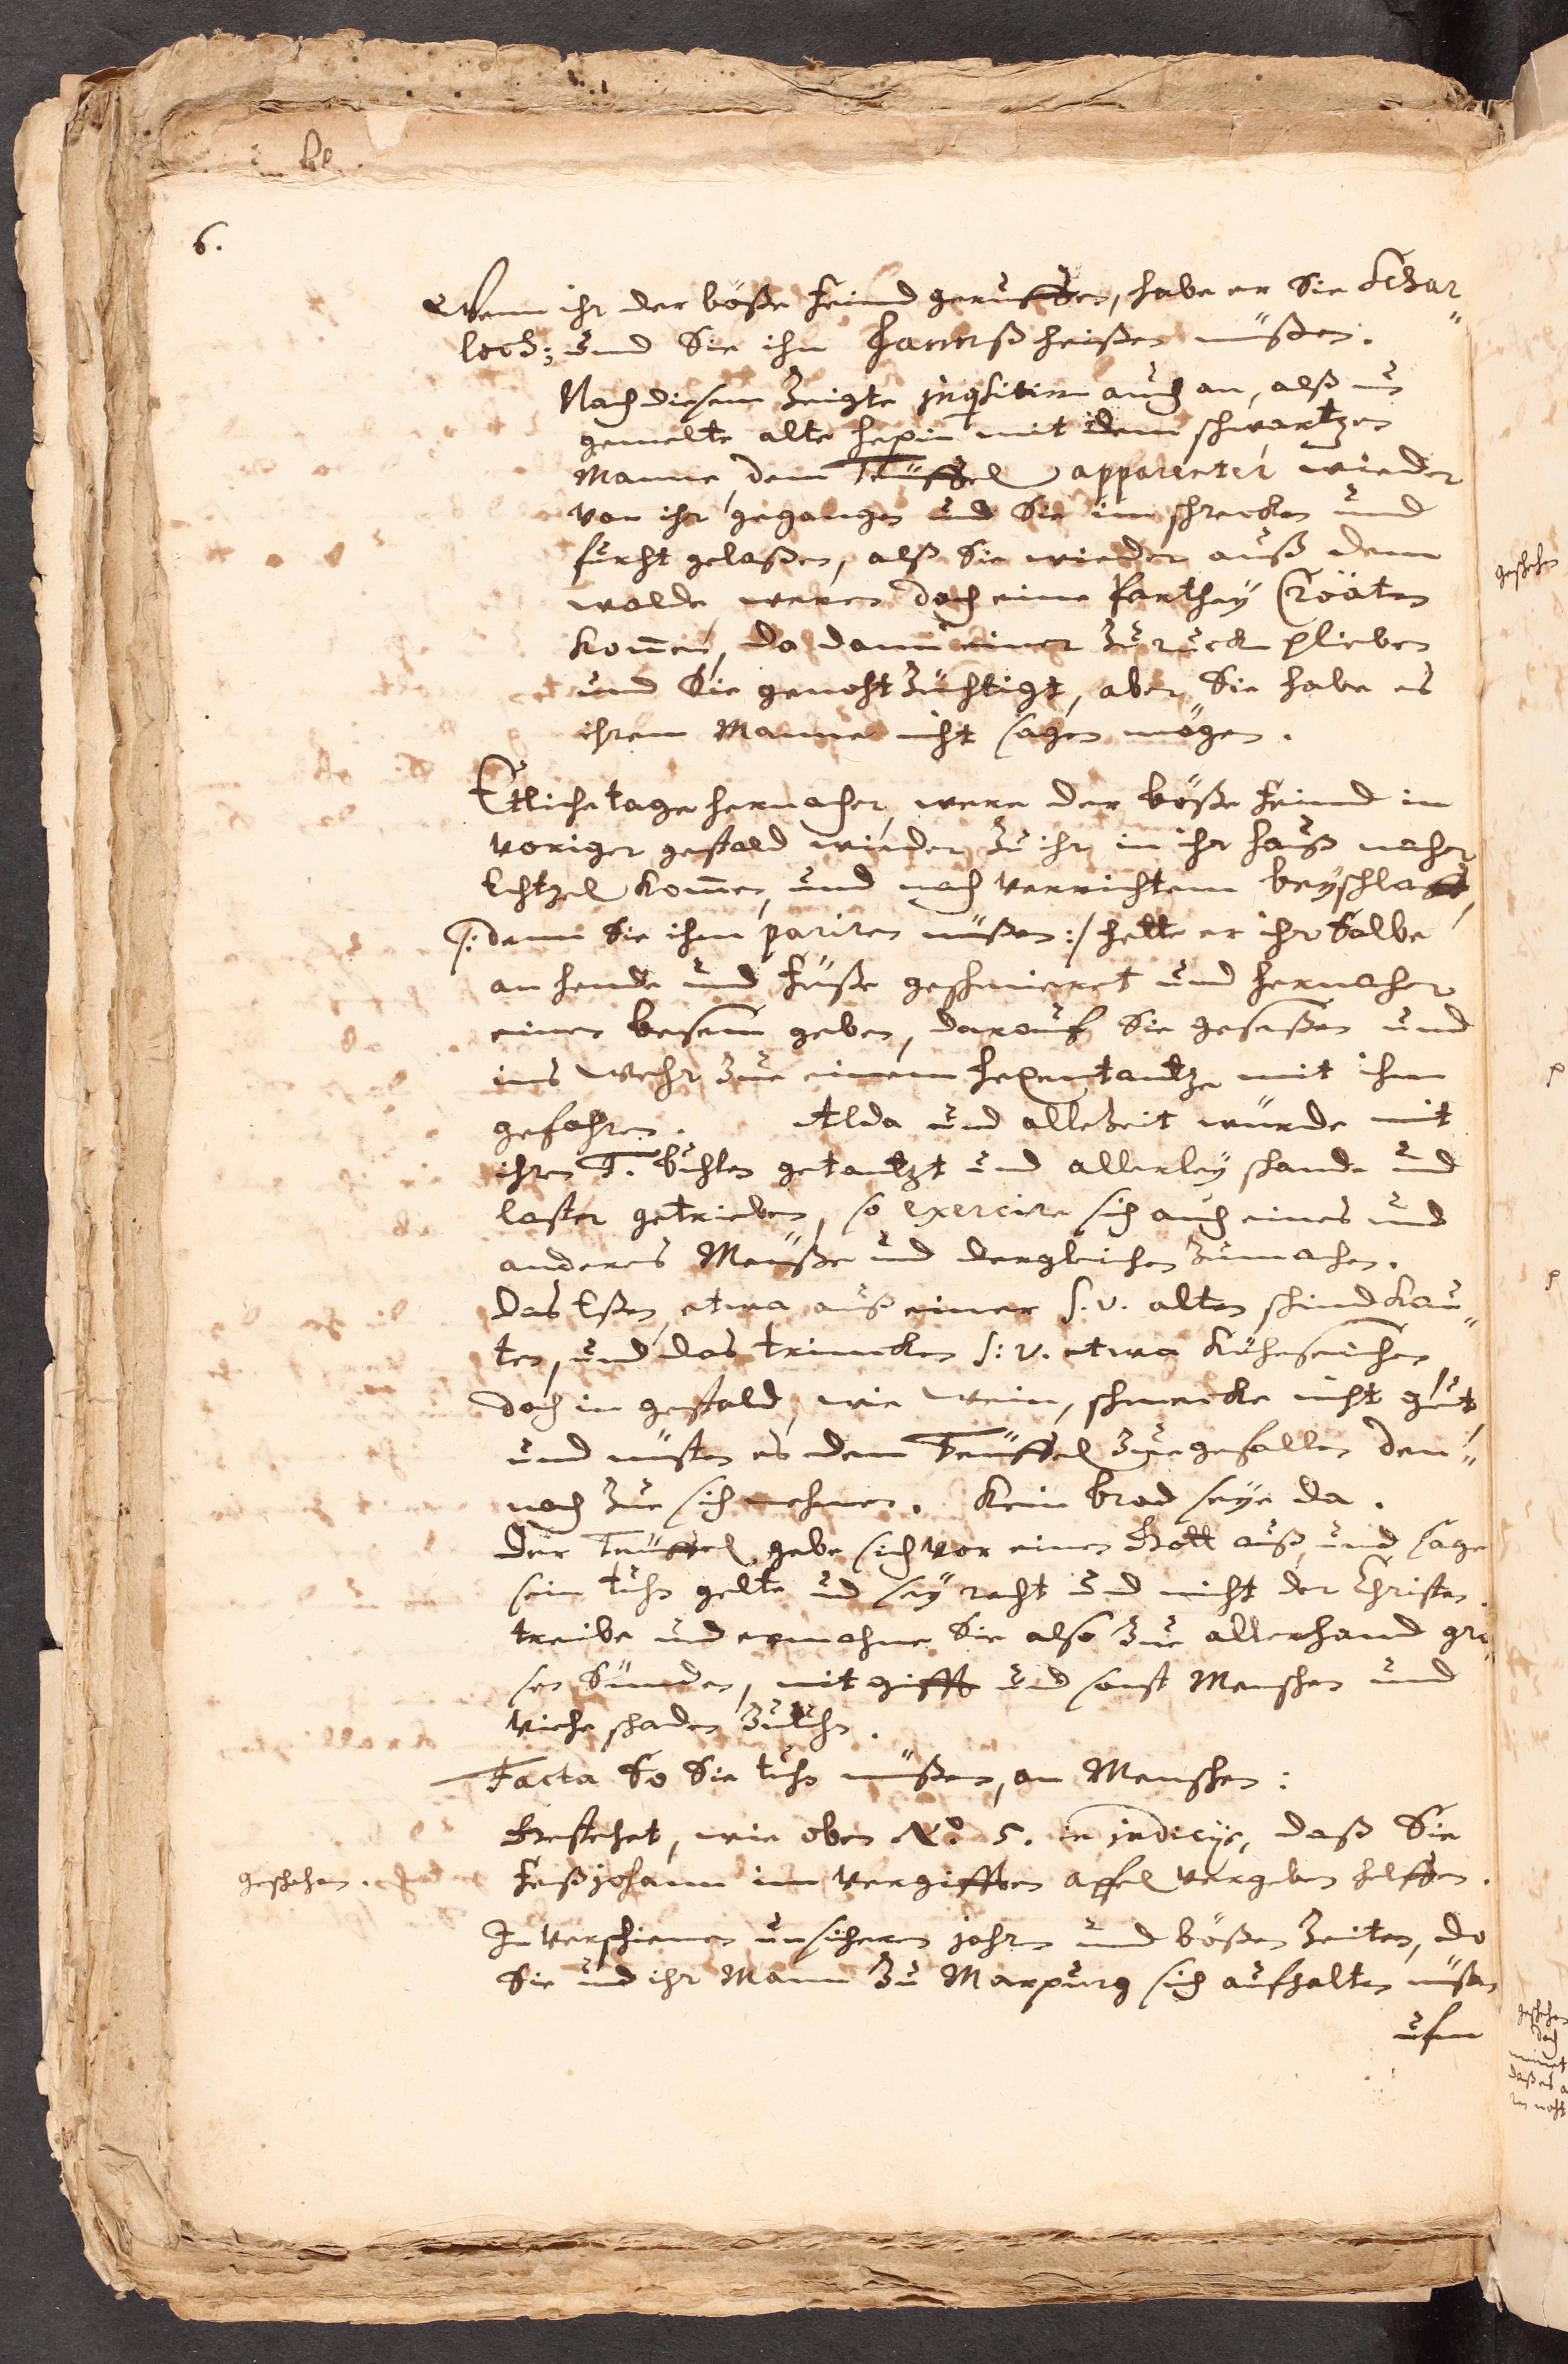 6.
Wenn ihr der böße Feind geruffen, habe er Sie Schar„
loch; und Sie ihn Hannß heißen müßen.
Nach diesem Zeigte inquisitin auch an, alß nun
gemelte alte hexin mit dem schwartzen
Manne dem Teüffel apparenter wieder
von ihr gegangen und Sie im schrecken und
furcht gelaßen, alß Sie wieder auß dem
walde weren doch eine Parthey Croäten
kom̄en, da dann einer Zurück plieben
und Sie genohtZüchtigt, aber Sie habe es
ihrem Manne nicht sagen mögen.
Etliche tage hernacher, were der böße Feind in
voriger gestald wieder Zu ihr in ihr Hauß nacher
Echtzel kom̄en, und nach verrichtem beyschlaff,
/: dem Sie ihm pariren müßen :/ hette er ihr Salbe
an hende und Füße geschmieret und hernacher
einen besem geben, darauf Sie geseßen und
ins Wehr zue einem hexentantze mit ihm
gefahren. Alda und alleZeit würde mit
ihren T. buhlen getantzt und allerley schande und
laster getrieben, so exercire sich auch eines und
anderes Meüße und dergleichen Zumachen.
Das Eßen, etwa auß einer s. v. alten schindkau„
ten, und das trincken s: v. etwa Küheseichen,
doch in gestald, wie Wein, schmecke nicht gut,
und müsten es dem Teüffel zue gefallen den„
noch zue sich nehmen. Kein brod seye da.
Der Teüffel gebe sich vor einen Gott auß und sage
sein tuhn gelte und sey recht und nicht der Christen.
treibe und ermahne Sie also zue allerhand gro„
sen Sünden, mit gifft und sonst Menschen und
Viehe schaden Zutuhn.
Facta So Sie tuhn müßen, an Menschen:
Gestehet, wie oben No. 5. in indicijs, daß Sie
geschehen. Feißjohann im vergifften apfel vergeben helffen.
In verschienen unsicheren jahren und bößen Zeiten, do
Sie und ihr Mann Zu Marpurg sich aufhalten müßen
ufm
geschehen
geschehen
doch
meinet
daß es